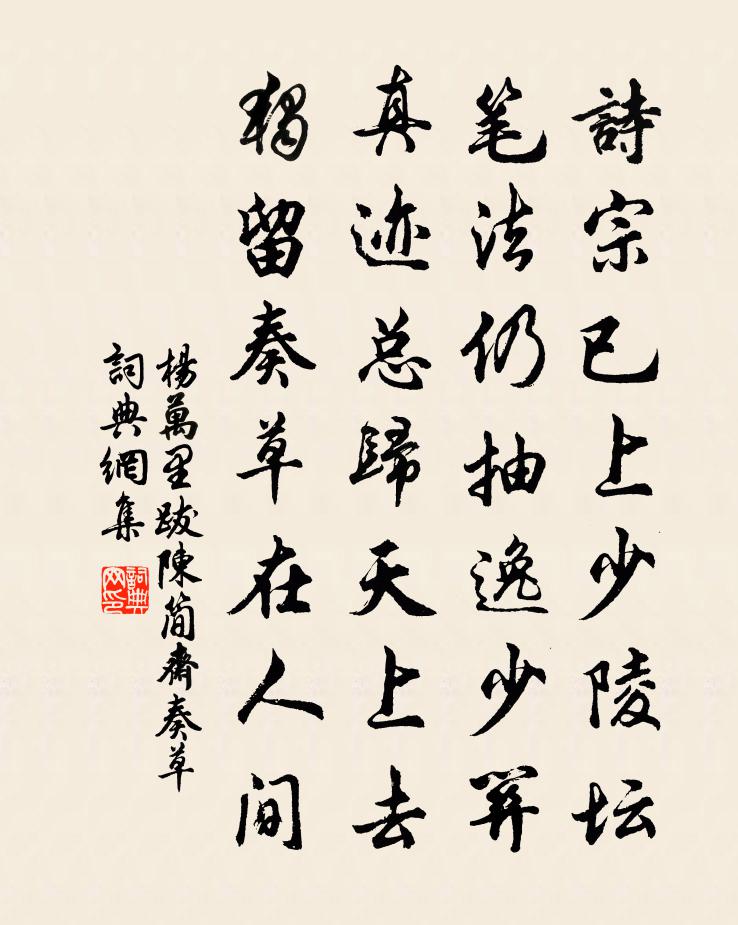 詩宗已上少陵坛
笔法仍抽逸少關
真迹总歸天上去
獨留奏草在人间
楊萬里跋陳简齋奏草
詞典網集
詞典网印